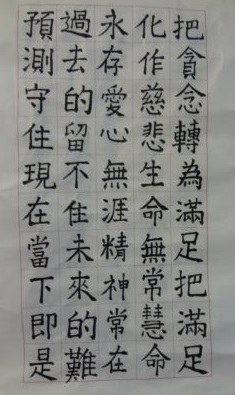 把貪念轉為滿足把滿足
化作慈悲生命無常慧命
永存愛心無涯精神常在
過去的留不住未來的難
預測守住現在當下即是